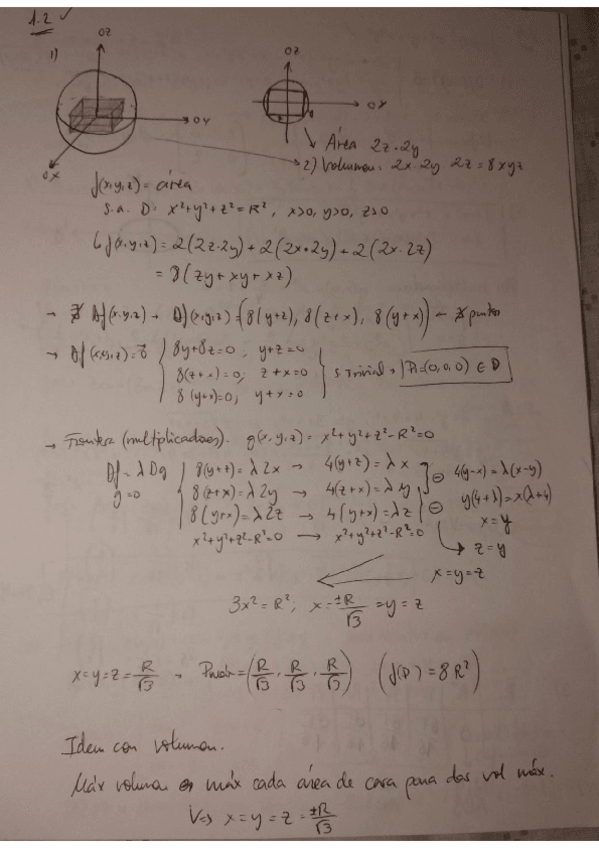 1.2 ✓
1)
OZ
OY
OX
OZ
OY
Área 2z·2y
2) Volumen: 2x·2y·2z = 8xyz
f(x,y,z) = área
s.a. D: x²+y²+z² = R², x>0, y>0, z≥0
f(x,y,z) = 2(2z·2y) + 2(2x·2y) + 2(2x·2z)
= 8(zy + xy + xz)
→ ∄ Df(x,y,z) → Df(x,y,z) = (8(y+z), 8(z+x), 8(y+x)) ← ∄ puntos
→ Df(x,y,z) = 0 { 8y+8z=0, y+z=0
8(z+x)=0; z+x=0
8(y+x)=0; y+x=0
S. Trivial → P1=(0,0,0) ∈ D
→ Frontera (multiplicadores). g(x,y,z) = x²+y²+z²-R²=0
Df = λDg
g=0
8(y+z) = λ2x → 4(y+z) = λx
8(z+x) = λ2y → 4(z+x) = λy
8(y+x) = λ2z → 4(y+x) = λz
x²+y²+z²-R²=0 → x²+y²+z²-R²=0
⊖ 4(y-x) = λ(x-y)
⊖ y(4+λ) = x(λ+4)
x=y
→ z=y
x=y=z
3x² = R²; x = ±R/√3 = y = z
x=y=z = R/√3 → Pmáx = (R/√3, R/√3, R/√3) (f(D) = 8R²)
Idem con volumen.
Máx volumen es máx cada área de cara para dar vol máx.
V ⇒ x = y = z = ±R/√3